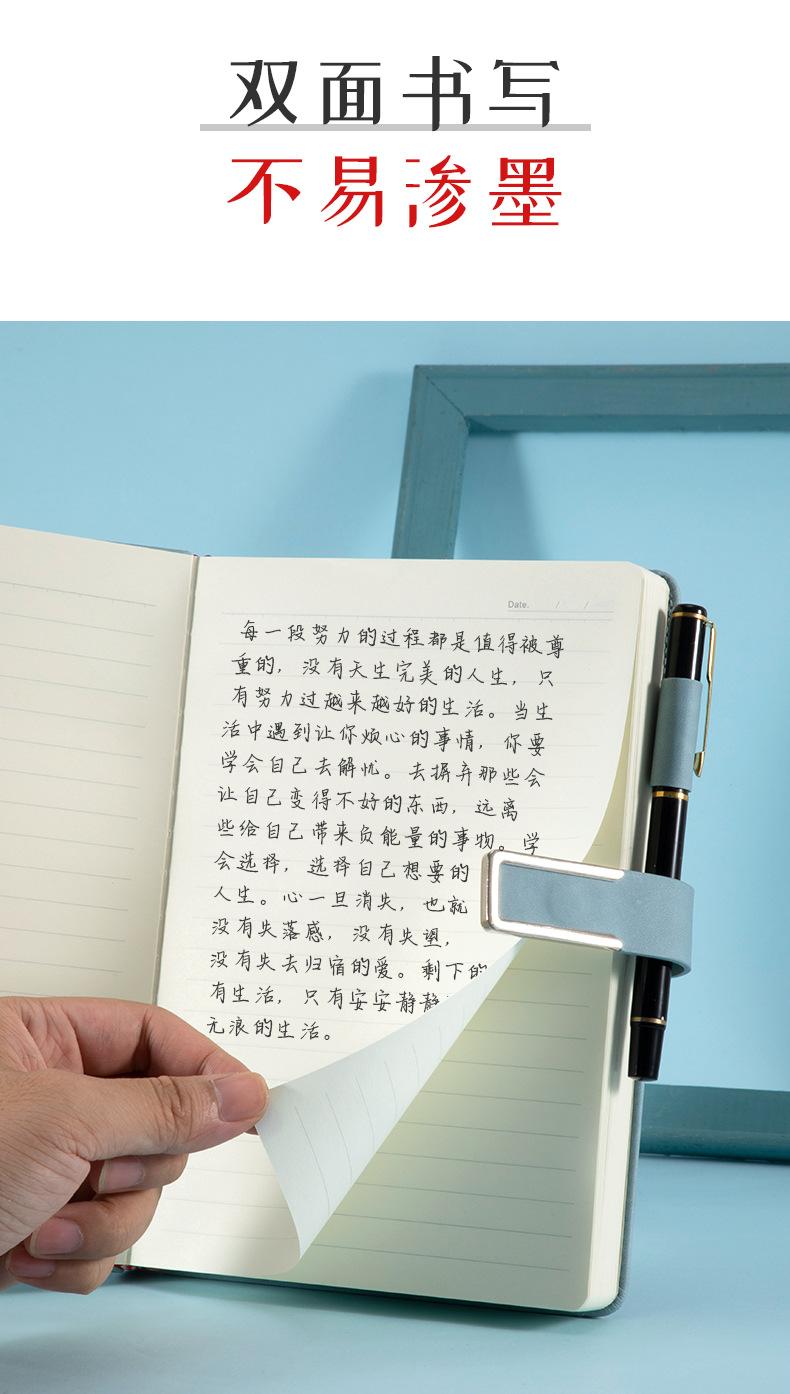 双面书写
不易渗墨
Date. / /
每一段努力的过程都是值得被尊
重的，没有天生完美的人生，只
有努力过越来越好的生活。当生
活中遇到让你烦心的事情，你要
学会自己去解忧。去摒弃那些会
让自己变得不好的东西，远离
些给自己带来负能量的事物。学
会选择，选择自己想要的
人生。心一旦消失，也就
没有失落感，没有失望，
没有失去归宿的爱。剩下的
有生活，只有安安静静
无浪的生活。